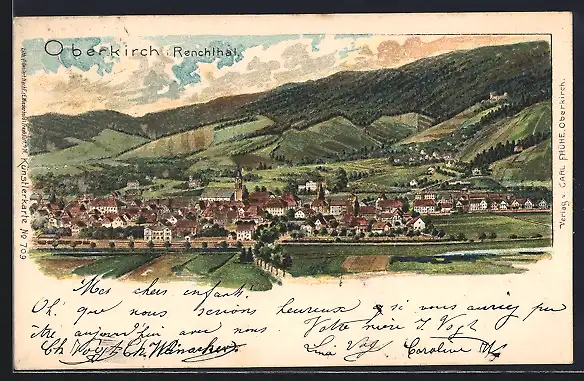 Oberkirch i. Renchthal.
Künstlerkarte No 709
Verlag v. CARL FRÜHE, Oberkirch.
Mes chers enfants.
Oh! que nous serions heureux si si vous auriez pu
être aujourd'hui avec nous. Votre mère J Vogt
Ch Vogt Ch. Lina Vogt Caroline